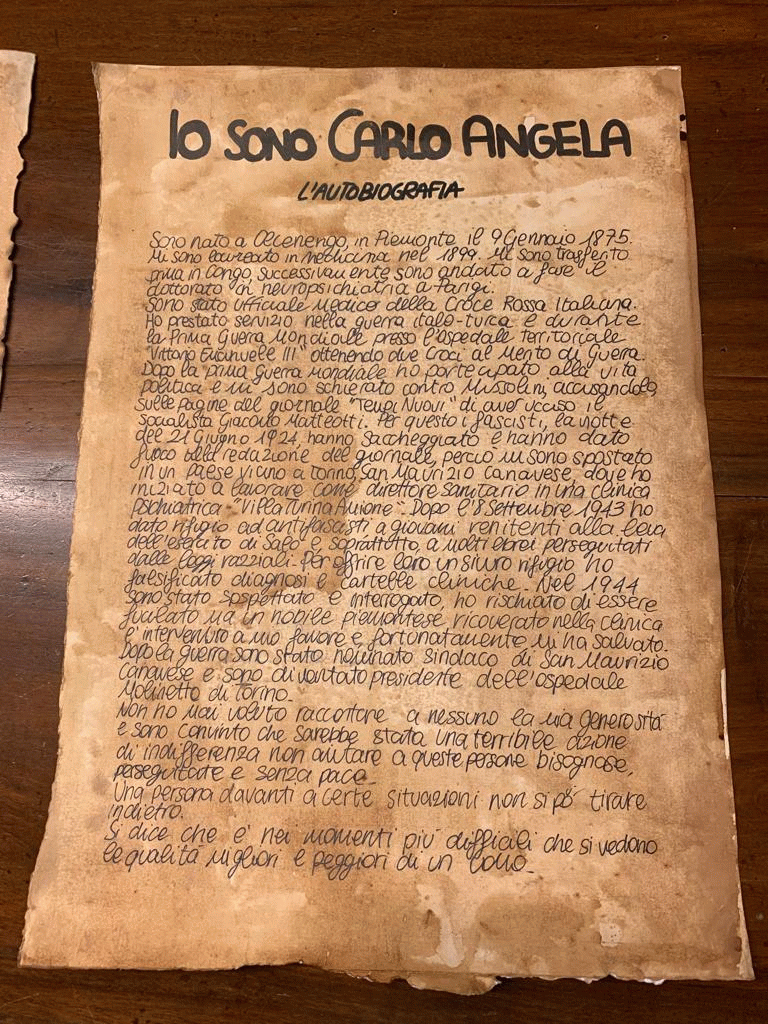 IO SONO CARLO ANGELA
L'AUTOBIOGRAFIA
Sono nato a Olcenengo, in Piemonte il 9 Gennaio 1875.
Mi sono laureato in medicina nel 1899. Mi sono trasferito
prima in Congo, successivamente sono andato a fare il
dottorato in neuropsichiatria a Parigi.
Sono stato ufficiale medico della Croce Rossa Italiana.
Ho prestato servizio nella guerra italo-turca e durante
la Prima Guerra Mondiale presso l'ospedale territoriale
"Vittorio Emanuele III" ottenendo due Croci al Merito di Guerra.
Dopo la prima Guerra Mondiale ho partecipato alla vita
politica e mi sono schierato contro Mussolini, accusandolo,
sulle pagine del giornale "Tempi Nuovi" di aver ucciso il
socialista Giacomo Matteotti. Per questo i fascisti, la notte
del 21 Giugno 1924, hanno saccheggiato e hanno dato
fuoco alla redazione del giornale, perciò mi sono spostato
in un paese vicino a Torino, San Maurizio Canavese, dove ho
iniziato a lavorare come direttore sanitario in una clinica
psichiatrica "Villa Turina Amione". Dopo l'8 Settembre 1943 ho
dato rifugio ad antifascisti a giovani renitenti alla leva
dell'esercito di Salò e soprattutto, a molti ebrei perseguitati
dalle leggi razziali. Per offrire loro un sicuro rifugio ho
falsificato diagnosi e cartelle cliniche. Nel 1944
sono stato sospettato e interrogato, ho rischiato di essere
fucilato ma un nobile piemontese ricoverato nella clinica
è intervenuto a mio favore e fortunatamente mi ha salvato.
Dopo la guerra sono stato nominato sindaco di San Maurizio
Canavese e sono diventato presidente dell'ospedale
Molinetto di Torino.
Non ho mai voluto raccontare a nessuno la mia generosità
e sono convinto che sarebbe stata una terribile azione
di indifferenza non aiutare a queste persone bisognose,
perseguitate e senza pace.
Una persona davanti a certe situazioni non si pò tirare
indietro.
Si dice che e' nei momenti più difficili che si vedono
le qualità migliori e peggiori di un uomo.